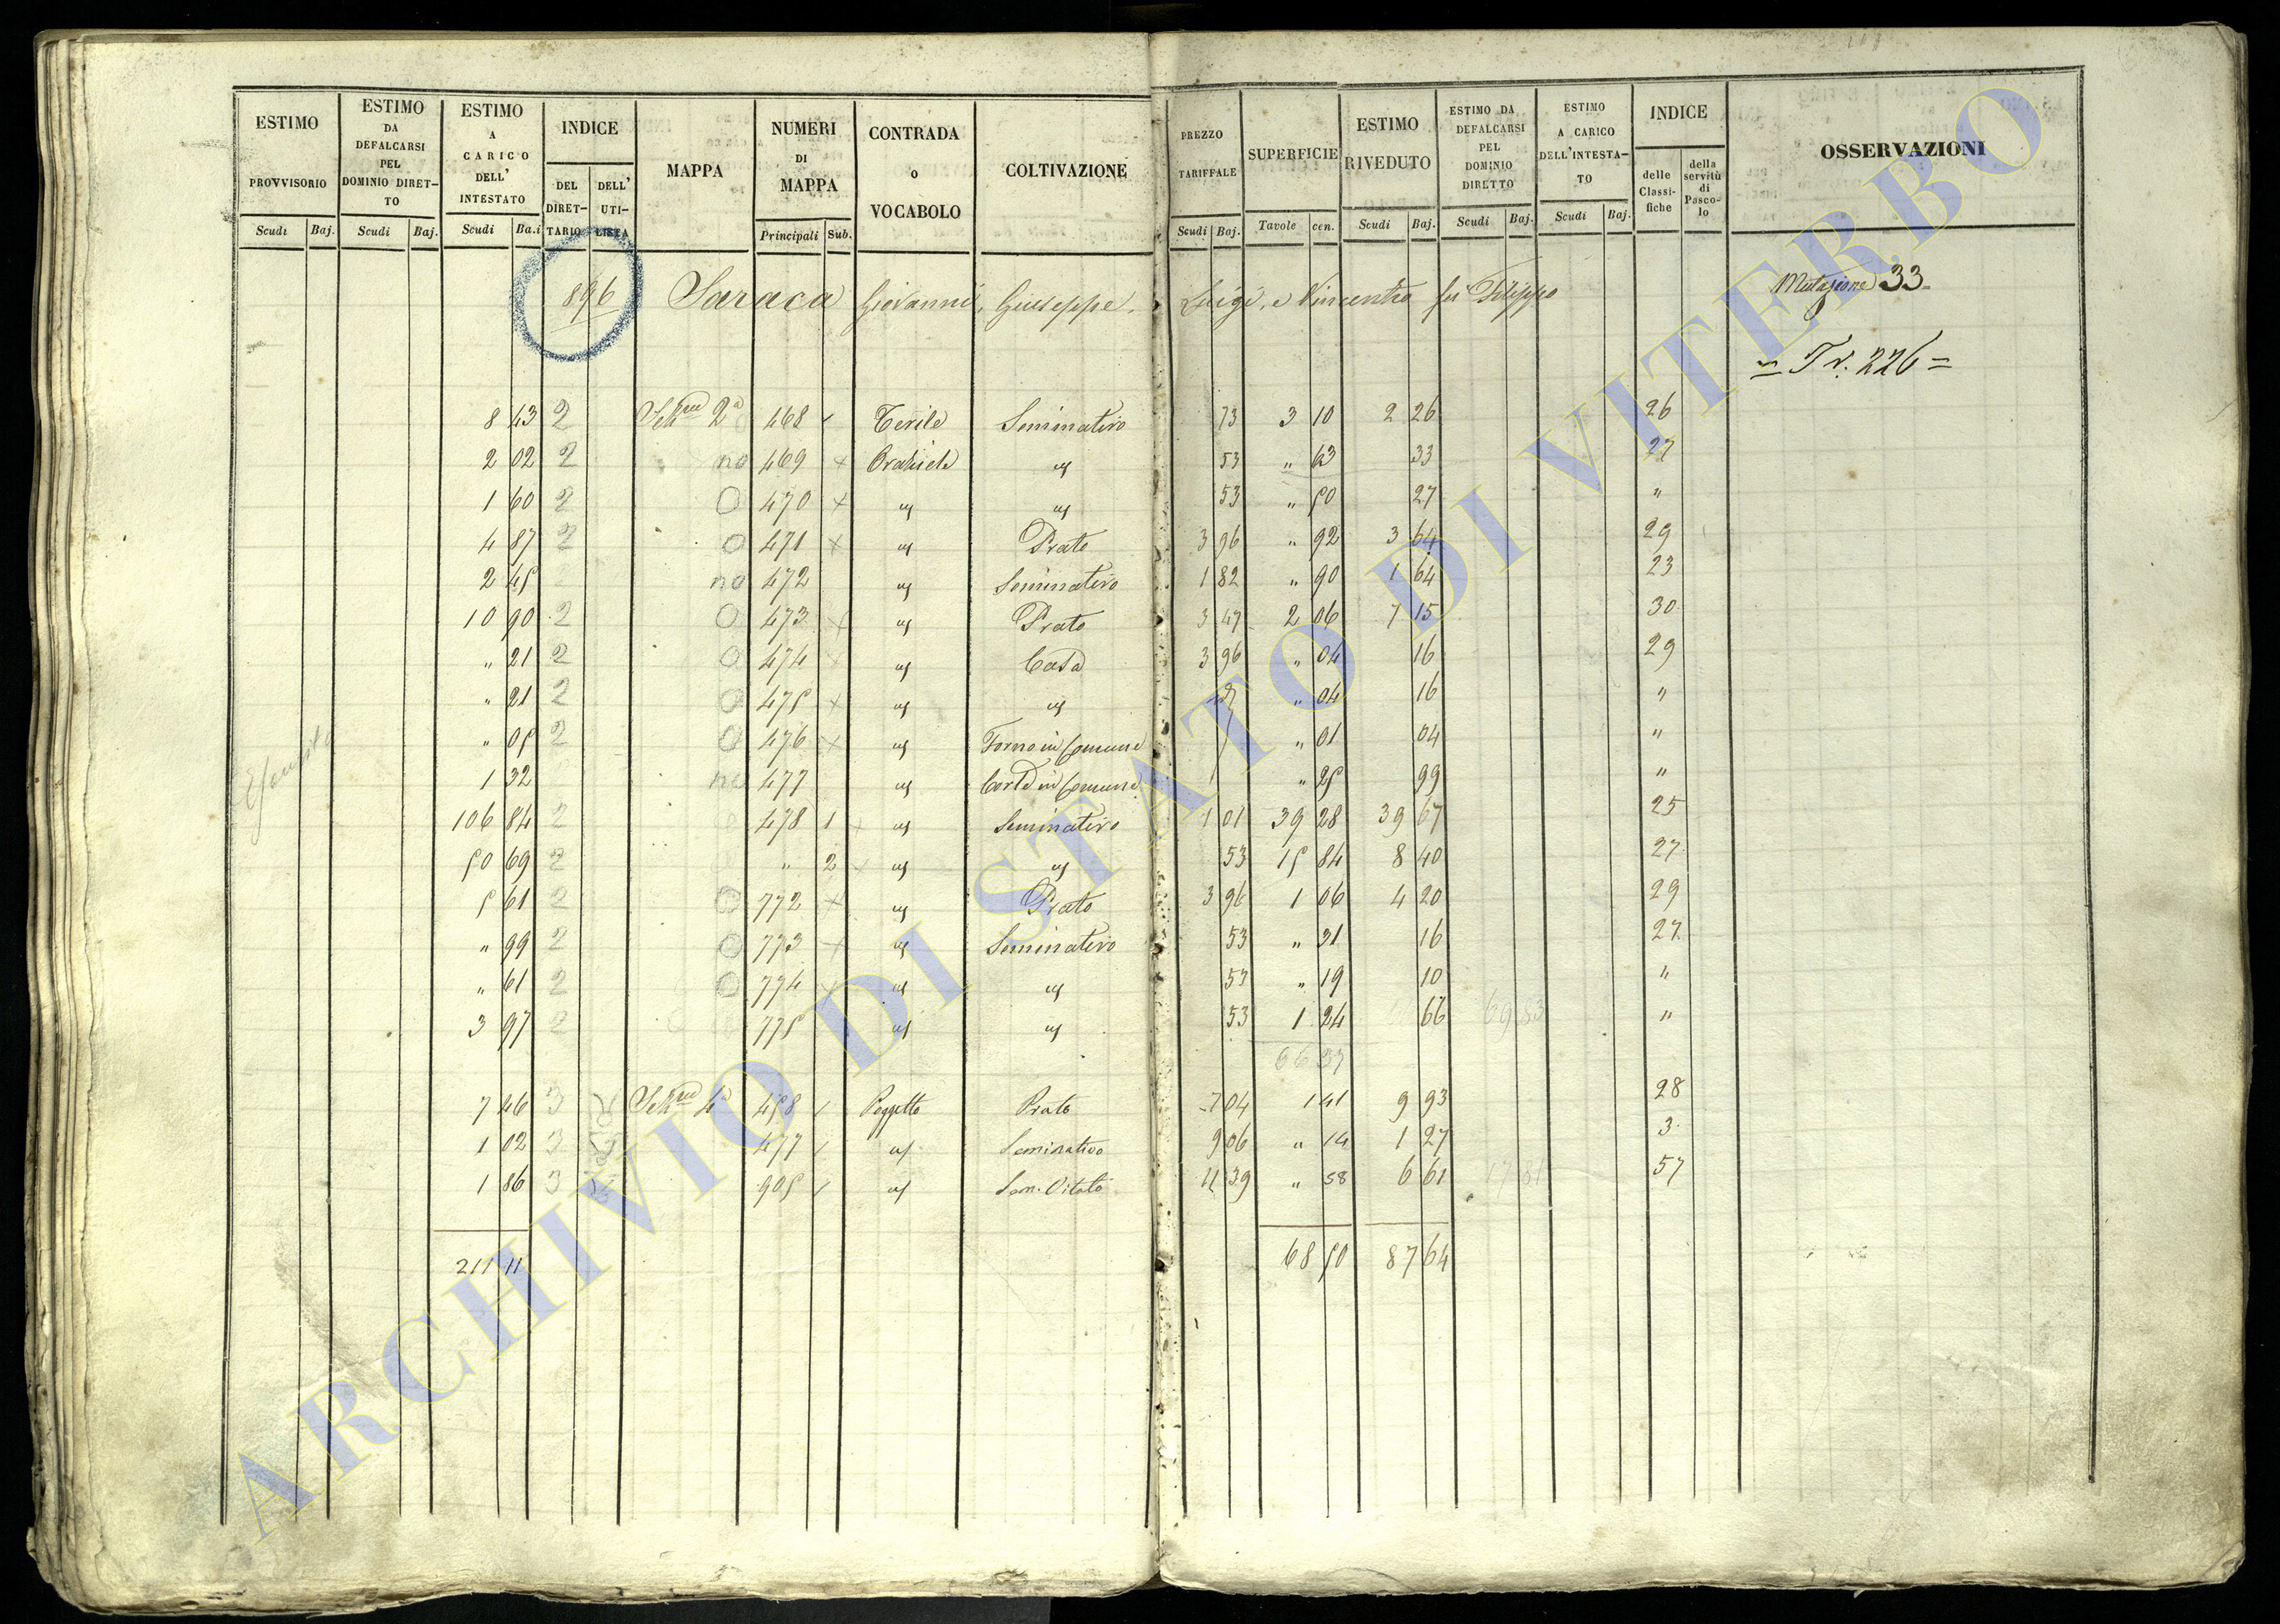 ESTIMO PROVVISORIO Scudi Baj. ESTIMO DA DEFALCARSI PEL DOMINIO DIRETTO Scudi Baj. ESTIMO A CARICO DELL' INTESTATO Scudi Ba.i INDICE DEL DIRETTARIO DELL' UTILISTA MAPPA NUMERI DI MAPPA Principali Sub. CONTRADA o VOCABOLO COLTIVAZIONE PREZZO TARIFFALE Scudi Baj. SUPERFICIE Tavole cen. ESTIMO RIVEDUTO Scudi Baj. ESTIMO DA DEFALCARSI PEL DOMINIO DIRETTO Scudi Baj. ESTIMO A CARICO DELL'INTESTATO Scudi Baj. INDICE delle Classifiche della servitù di Pascolo OSSERVAZIONI
896 Saraca Giovanni, Giuseppe, Luigi, e Vincenzo fu Filippo Mutazione 33
= Tr. 226 =
8 43 2 2a 468 Seminativo 73 3 10 2 26 26
2 02 2 no 469 x " 53 " 63 33 27
1 60 2 0 470 x " " 53 " 50 27 "
4 87 2 0 471 x " Prato 3 96 " 92 3 64 29
2 45 no 472 " Seminativo 1 82 " 90 1 64 23
10 90 2 0 473 x " Prato 3 47 2 06 7 15 30
" 21 2 0 474 x " Casa 3 96 " 04 16 29
" 21 2 0 475 x " " " 04 16 "
" 05 2 0 476 x " Forno in Comune " 01 04 "
1 32 no 477 " Corte in Comune " 25 99 "
106 84 2 478 1 x " Seminativo 1 01 39 28 39 67 25
50 69 2 " 2 x " " 53 15 84 8 40 27
5 61 2 0 772 x " Prato 3 96 1 06 4 20 29
" 99 2 0 773 x " Seminativo 53 " 31 16 27
" 61 2 0 774 x " " 53 " 19 10 "
3 97 2 775 " " 53 1 24 66 69 53 "
66 37
7 46 3 458 Poggetto Prato 7 04 1 41 9 93 28
1 02 3 477 " Seminativo 9 06 " 14 1 27 3
1 86 3 905 " Sem. Vitato 11 39 " 58 6 61 17 81 57
211 11 68 50 87 64
ARCHIVIO DI STATO DI VITERBO